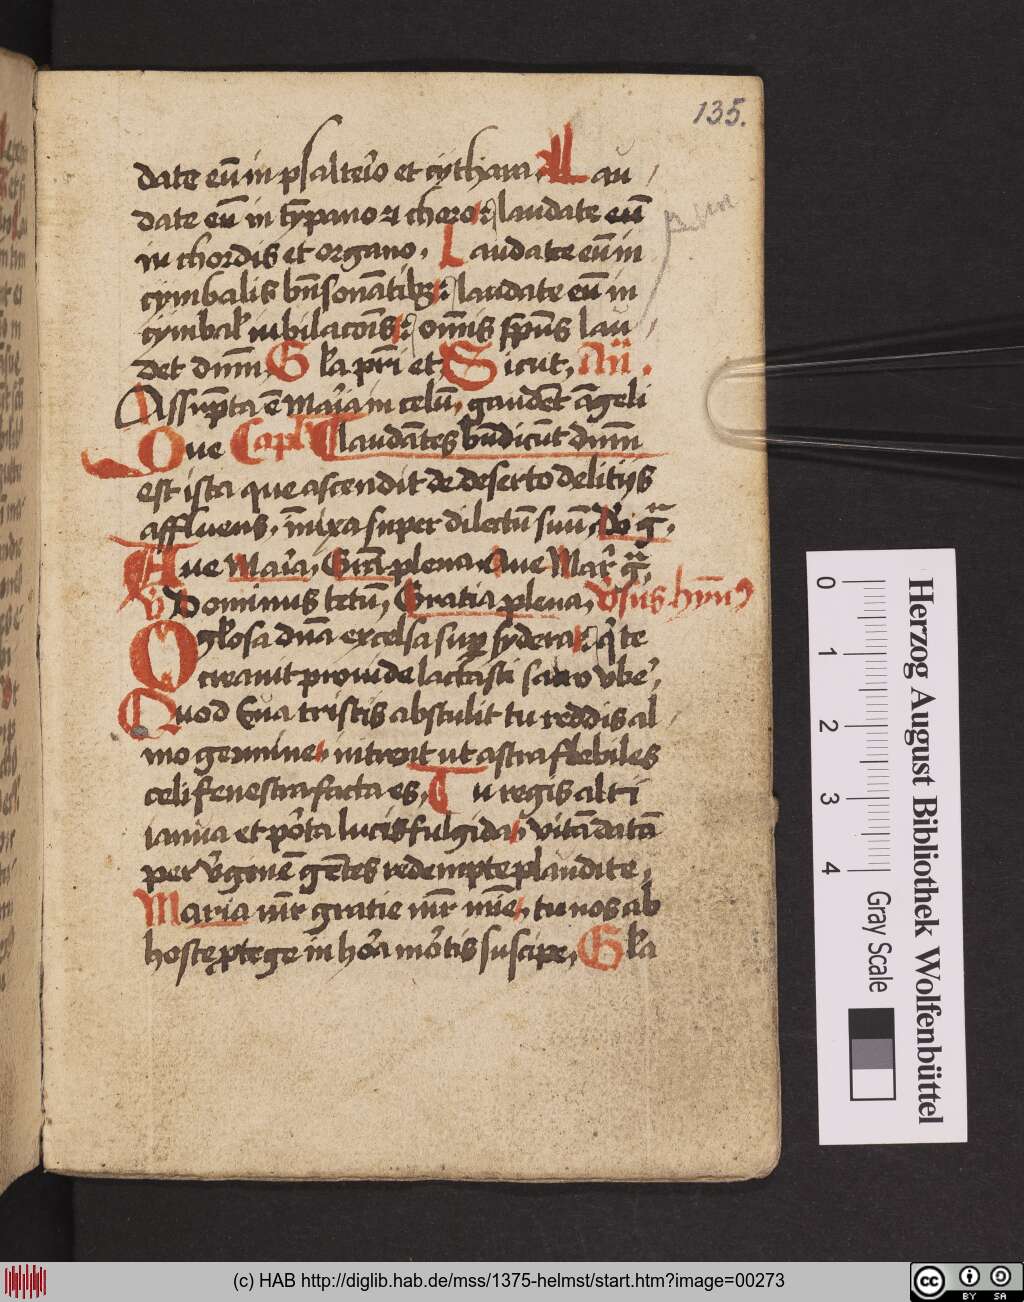 135.
date eū in psalterio et cythara. Lau
date eū in tȳpano et choro: laudate eū
in chordis et organo. Laudate eū in
cymbalis bn̄sonātibꝫ: laudate eū in
cymbal iubilacōis: om̄is sp̄us lau
det dnm̄. Gl̓a pr̄i et Sicut. Añ.
Assūpta ē Mar̓ia in celū. gaudēt āgeli
Que Capl̓ laudātes bn̄dicūt dnm̄
est ista que ascendit de deserto delitijs
affluens. īnixa super dilectū suū. Do gr̄a.
Aue Mar̓ia. Gr̄a plena. Aue Mar̓ gr̄a,
v̓ Dominus tetū, Gratia plena, v̓sus hym̄
O gl̓osa dn̄a excelsa suꝑ sydera: q̓ te
creauit prouide lactasti sacro vbe̓.
Quod Eua tristis abstulit tu reddis al
mo germine. intrent ut astra flebiles
celi fenestra facta es. Tu regis alti
ianua et po̓ta lucis fulgida. vitā datā
per v̓ginē gētes redempte plaudite.
Maria mr̄ gratie mr̄ mīe. tu nos ab
hoste ꝓtege in ho̓a mo̓tis suscipe. Gl̓a
Herzog August Bibliothek Wolfenbüttel
0 1 2 3 4
Gray Scale
(c) HAB http://diglib.hab.de/mss/1375-helmst/start.htm?image=00273
cc BY SA